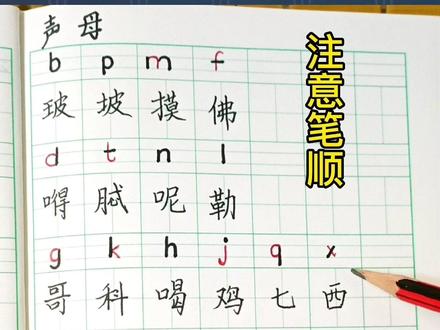 声母
b p m f
玻 坡 摸 佛
d t n l
嘚 䞍 呢 勒
g k h j q x
哥 科 喝 鸡 七 西
注意笔顺